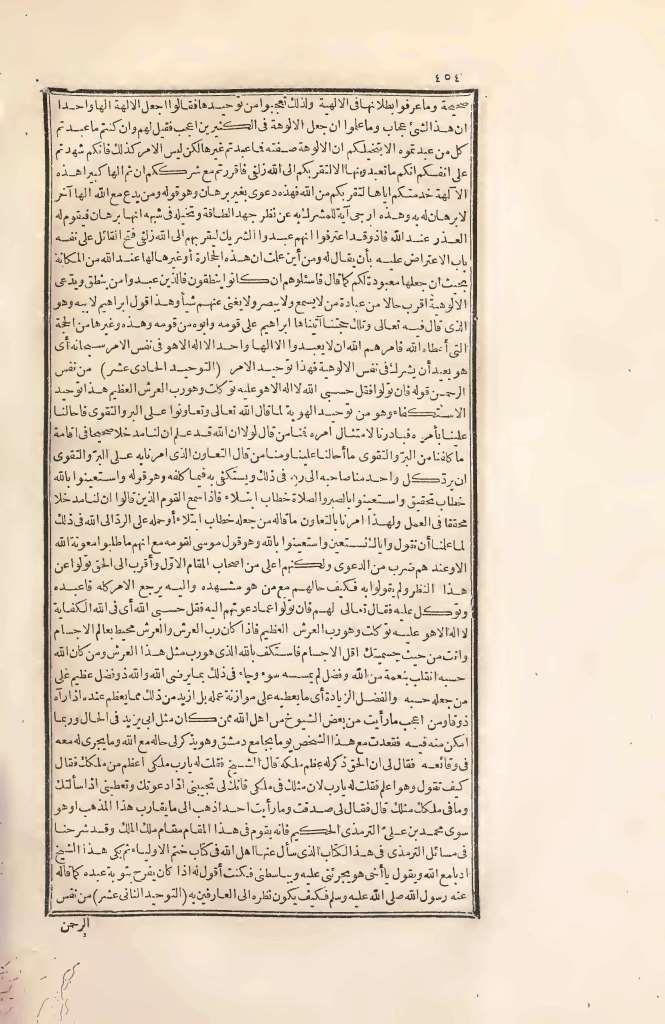 ٤٥٤
صحيحة وما عرفوا بطلانها فى الالهية ولذلك تعجبوا من توحيدها فقالوا اجعل الالهة الها واحدا
ان هذا لشئ عجاب وما علموا ان جعل الالوهة فى الكثيرين اعجب فقيل لهم وان كنتم ما عبدتم
كل من عبدتموه الا بتخيلكم ان الالوهة صفته فما عبدتم غيرها لكن ليس الامر كذلك فانكم شهدتم
على انفسكم انكم ما تعبدونها الا لتقربكم الى الله زلفى فاقررتم مع شرككم ان ثم الها كبيرا هذه
الآلهة خدمتكم اياها لتقربكم من الله فهذه دعوى بغير برهان وهو قوله ومن يدع مع الله الها آخر
لا برهان له به وهذه ارجى آية للمشرك به عن نظر جهد الطاقة وتخيله فى شبهه انها برهان فيقوم له
العذر عند الله فاذ وقد اعترفوا انهم عبدوا الشريك ليقربهم الى الله زلفى فتح القائل على نفسه
باب الاعتراض عليه بأن يقال له ومن أين علمت ان هذه الحجارة أو غيرها لها عند الله من المكانة
بحيث ان جعلها معبودة لكم كما قال فاسئلوهم ان كانوا ينطقون فالذين عبدوا من ينطق ويدعى
الالوهية اقرب حالا من عبادة من لا يسمع ولا يبصر ولا يغنى عنهم شيأ وهذا قول ابراهيم لابيه وهو
الذى قال فيه تعالى وتلك حجتنا آتيناها ابراهيم على قومه وابوه من قومه وهذه وغيرها من الحجة
التى أعطاه الله فامرهم الله ان لا يعبدوا الا الها واحدا لا اله الا هو فى نفس الامر سبحانه أى
هو بعيد أن يشرك فى نفس الالوهية فهذا توحيد الامر (التوحيد الحادى عشر) من نفس
الرحمن قوله فان تولوا فقل حسبى الله لا اله الا هو عليه توكلت وهو رب العرش العظيم هذا توحيد
الاستكفاء وهو من توحيد الهوية لما قال الله تعالى وتعاونوا على البر والتقوى فاحالنا
علينا بأمره فبادرنا لامتثال امره فمنا من قال لولا ان الله قد علم ان لنا مدخلا صحيحا فى اقامة
ما كلفنا من البر والتقوى ما أحالنا علينا ومنا من قال التعاون الذى امرنا به على البر والتقوى
ان يرد كل واحد منا صاحبه الى ربه فى ذلك ويستكفى به فيما كلفه وهو قوله واستعينوا بالله
خطاب تحقيق واستعينوا بالصبر والصلاة خطاب ابتلاء فاذا سمع القوم الذين قالوا ان لنا مدخلا
محققا فى العمل ولهذا امرنا بالتعاون ما قاله من جعله خطاب ابتلاء أو حمله على الرد الى الله فى ذلك
لما علمنا أن نقول واياك نستعين واستعينوا بالله وهو قول موسى لقومه مع انهم ما طلبوا معونة الله
الا وعندهم ضرب من الدعوى ولكنهم اعلى من اصحاب المقام الاول وأقرب الى الحق تولوا عن
هذا النظر ولم يقولوا به فكيف حالهم مع من هو مشهده واليه يرجع الامر كله فاعبده
وتوكل عليه فقال تعالى لهم فان تولوا عما دعوتهم اليه فقل حسبى الله أى فى الله الكفاية
لا اله الا هو عليه توكلت وهو رب العرش العظيم فاذا كان رب العرش والعرش محيط بعالم الاجسام
وانت من حيث جسميتك اقل الاجسام فاستكف بالله الذى هو رب مثل هذا العرش ومن كان الله
حسبه انقلب بنعمة من الله وفضل لم يمسسه سوء وجاء فى ذلك بما يرضى الله والله ذو فضل عظيم على
من جعله حسبه والفضل الزيادة أى ما يعطيه على موازنة عمله بل ازيد من ذلك مما يعظم عنده اذا رآه
ذوقا ومن اعجب ما رأيت من بعض الشيوخ من اهل الله ممن كان مثل ابى يزيد فى الحال وربما
امكن منه فيه فقعدت مع هذا الشخص يوما بجامع دمشق وهو يذكر لى حاله مع الله وما يجرى له معه
فى وقائعه فقال لى ان الحق ذكر له عظم ملكه قال الشيخ فقلت له يارب ملكى اعظم من ملكك فقال
كيف تقول وهو اعلم فقلت له يارب لان مثلك فى ملكى فانك لى تجيبنى اذا دعوتك وتعطينى اذا سألتك
وما فى ملكك مثلك قال فقال لى صدقت وما رأيت احدا ذهب الى ما يقارب هذا المذهب او هو
سوى محمد بن على الترمذى الحكيم فانه يقول فى هذا المقام مقام ملك الملك وقد شرحنا
فى مسائل الترمذى فى هذا الكتاب الذى سأل عنها اهل الله فى كتاب ختم الاولياء ثم بكى هذا الشيخ
ادبا مع الله ويقول يا أخى هو يجرئنى عليه ويباسطنى فكنت أقول له اذا كان يفرح بتوبة عبده كما قاله
عنه رسول الله صلى الله عليه وسلم فكيف يكون نظره الى العارفين به (التوحيد الثانى عشر) من نفس
الرحمن